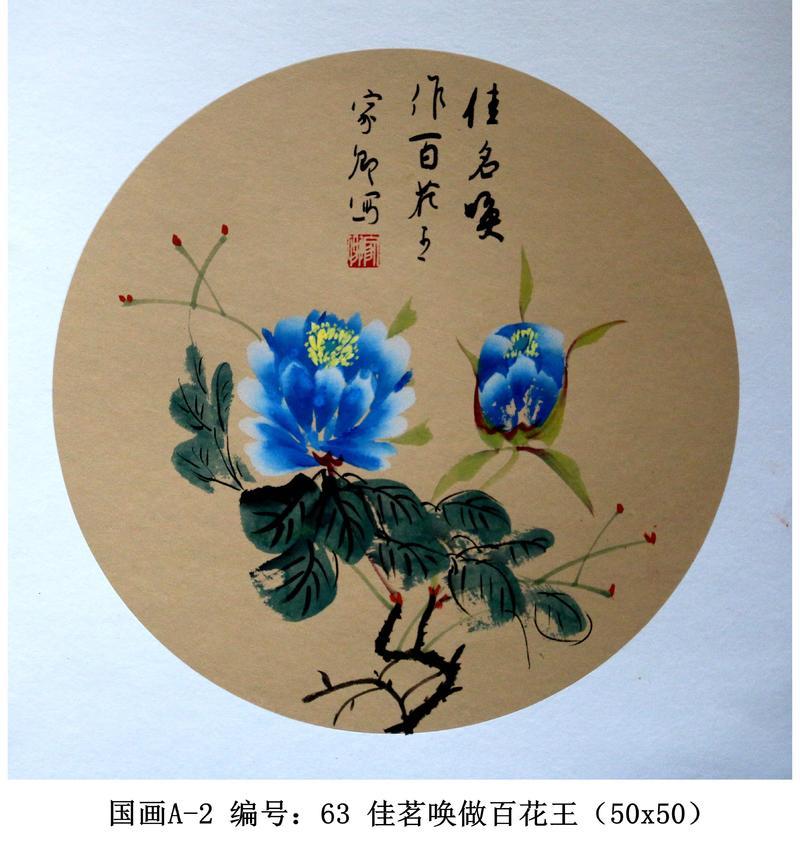 佳名唤
作百花王
家卿写
国画A-2 编号：63 佳茗唤做百花王（50x50）